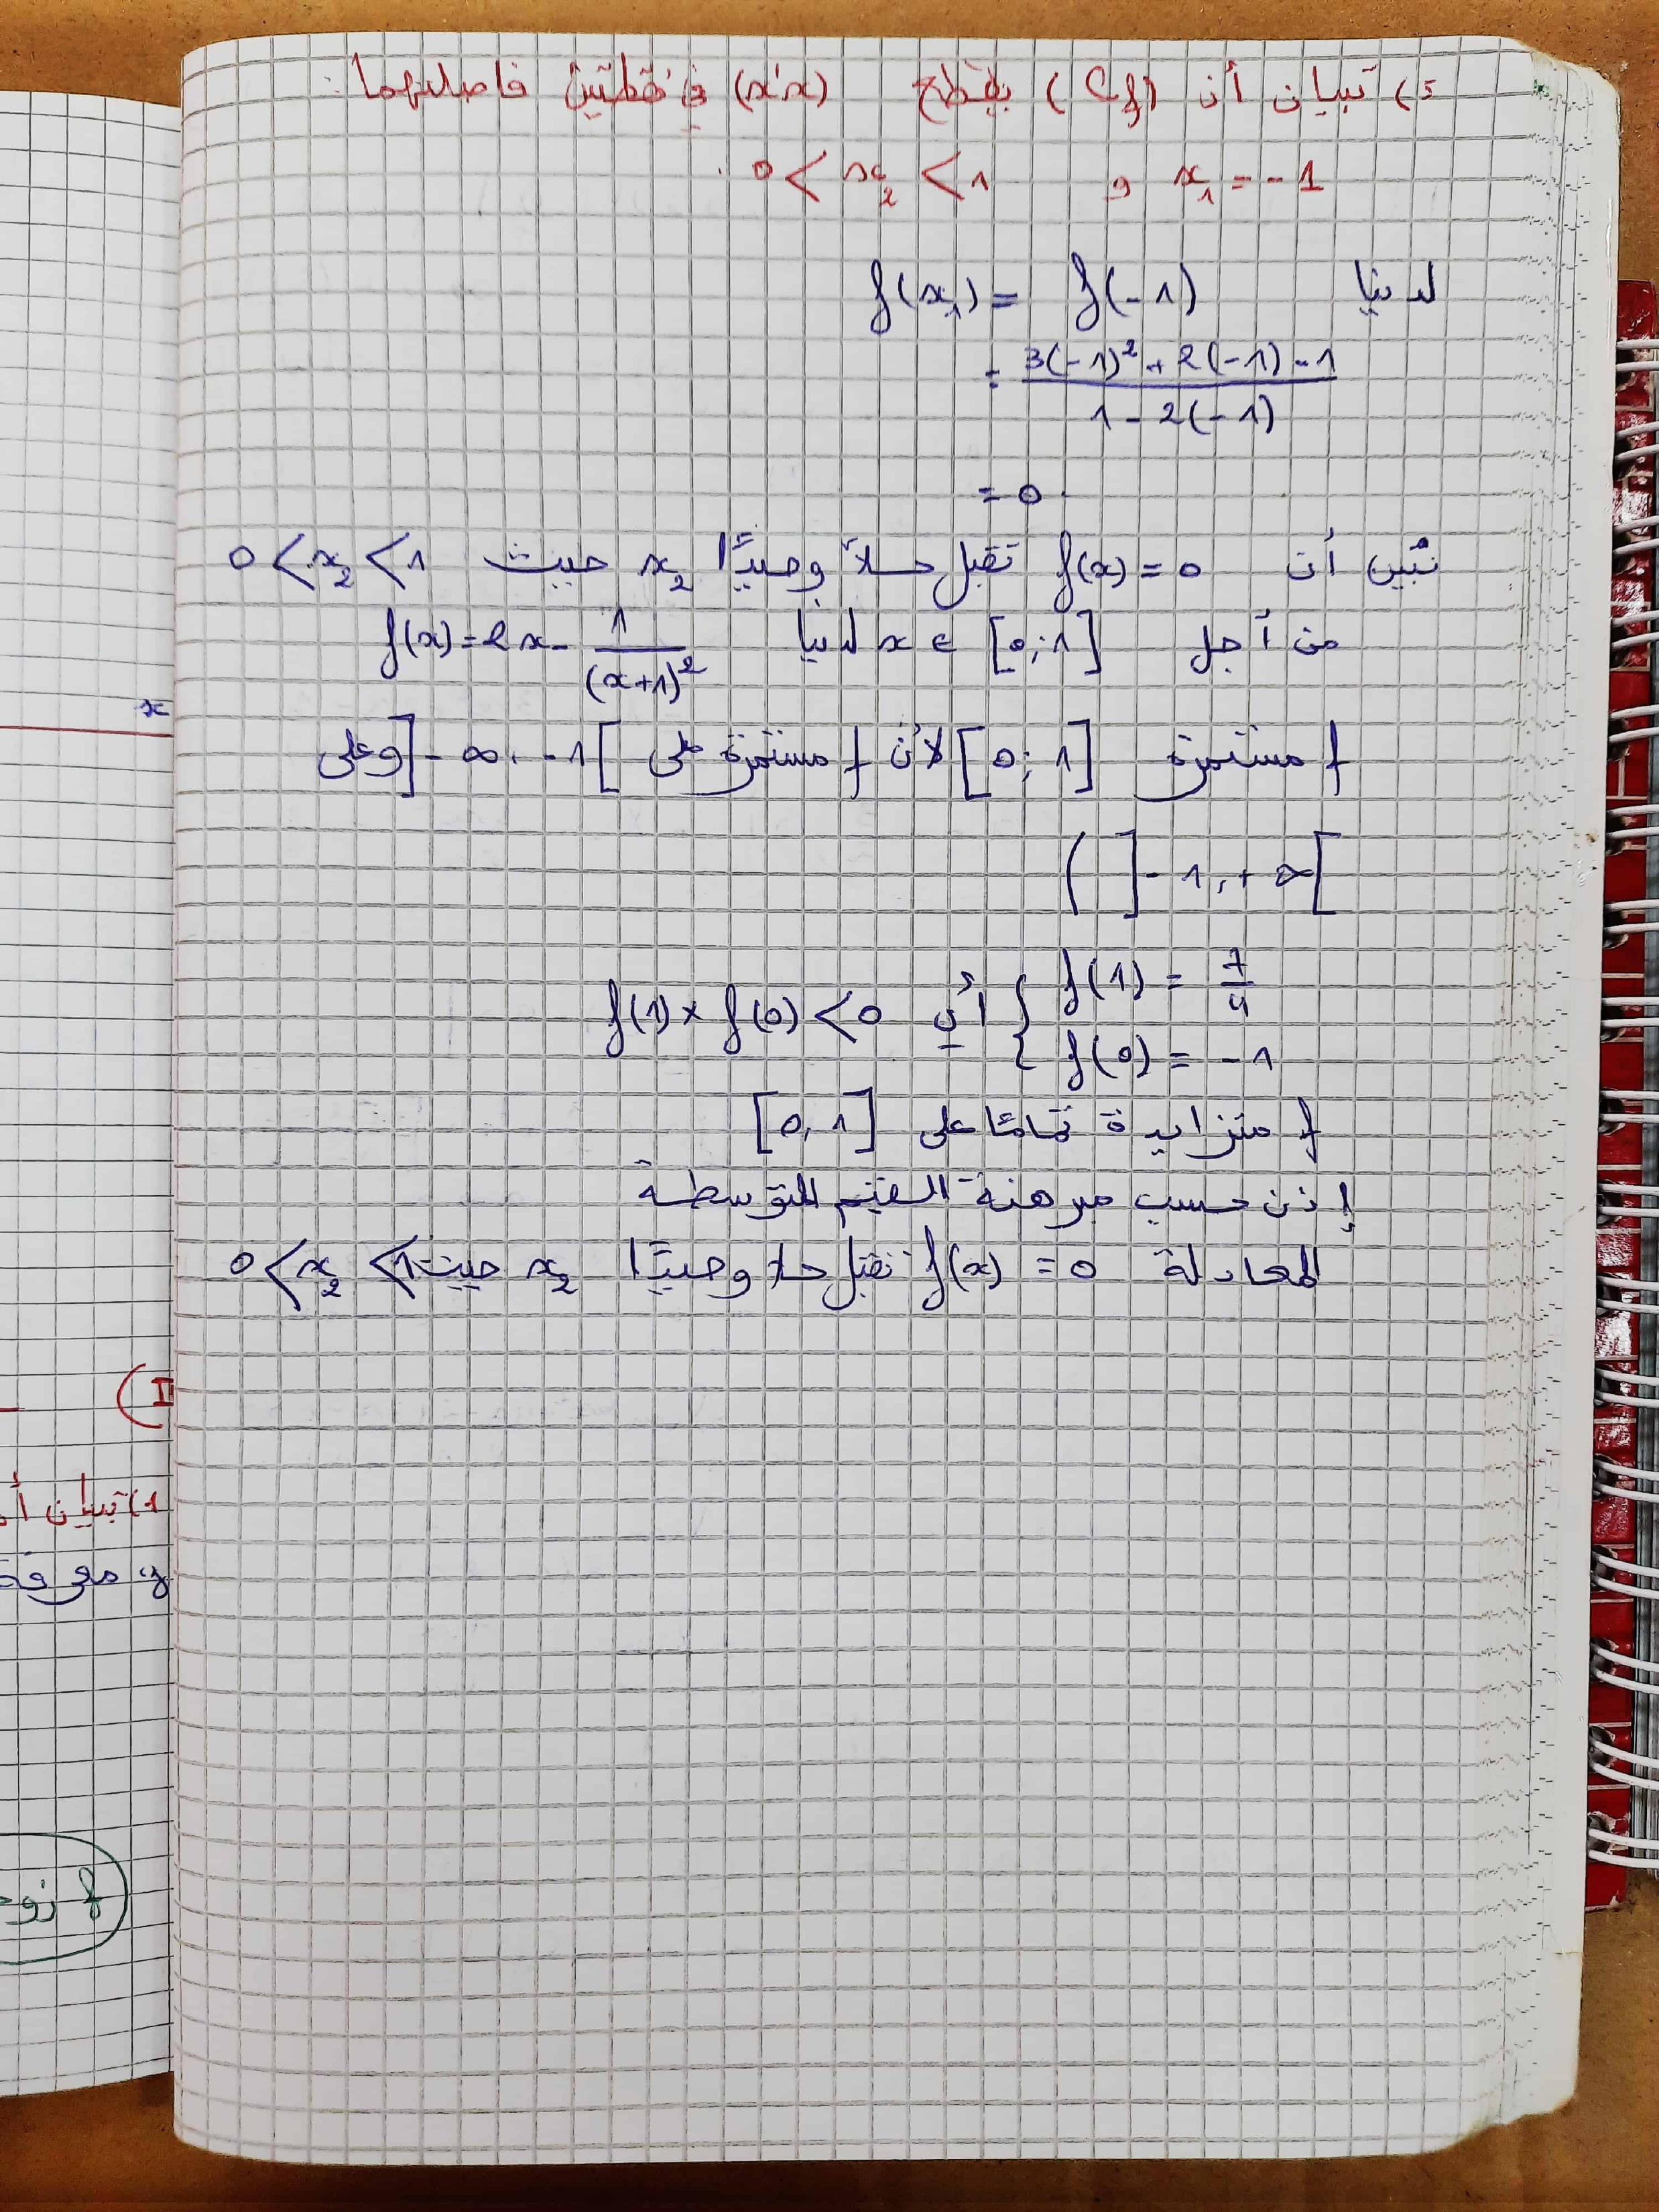 5) تبيان أن (Cf) يقطع (x'x) في نقطتين فاصلتهما :
x₁ = -1 و 0 < x₂ < 1 .
لدينا f(x₁) = f(-1)
= \frac{3(-1)² + 2(-1) - 1}{1 - 2(-1)}
= 0 .
نبّين أن f(x) = 0 تقبل حلاً وحيدًا x₂ حيث 0 < x₂ < 1
من أجل x ∈ [0; 1] لدينا f(x) = 2x - \frac{1}{(x+1)²}
f مستمرة [0; 1] لأن f مستمرة على ]-∞, -1[ وعلى
]-1, +∞[ )
{ f(1) = \frac{7}{4} أي f(1) × f(0) < 0
f(0) = -1
f متزايدة تمامًا على [0, 1]
إذن حسب مبرهنة القيم المتوسطة
المعادلة f(x) = 0 تقبل حلا وحيدًا x₂ حيث 0 < x₂ < 1
x
II)
1) تبيان أ
f معرفة
f زو